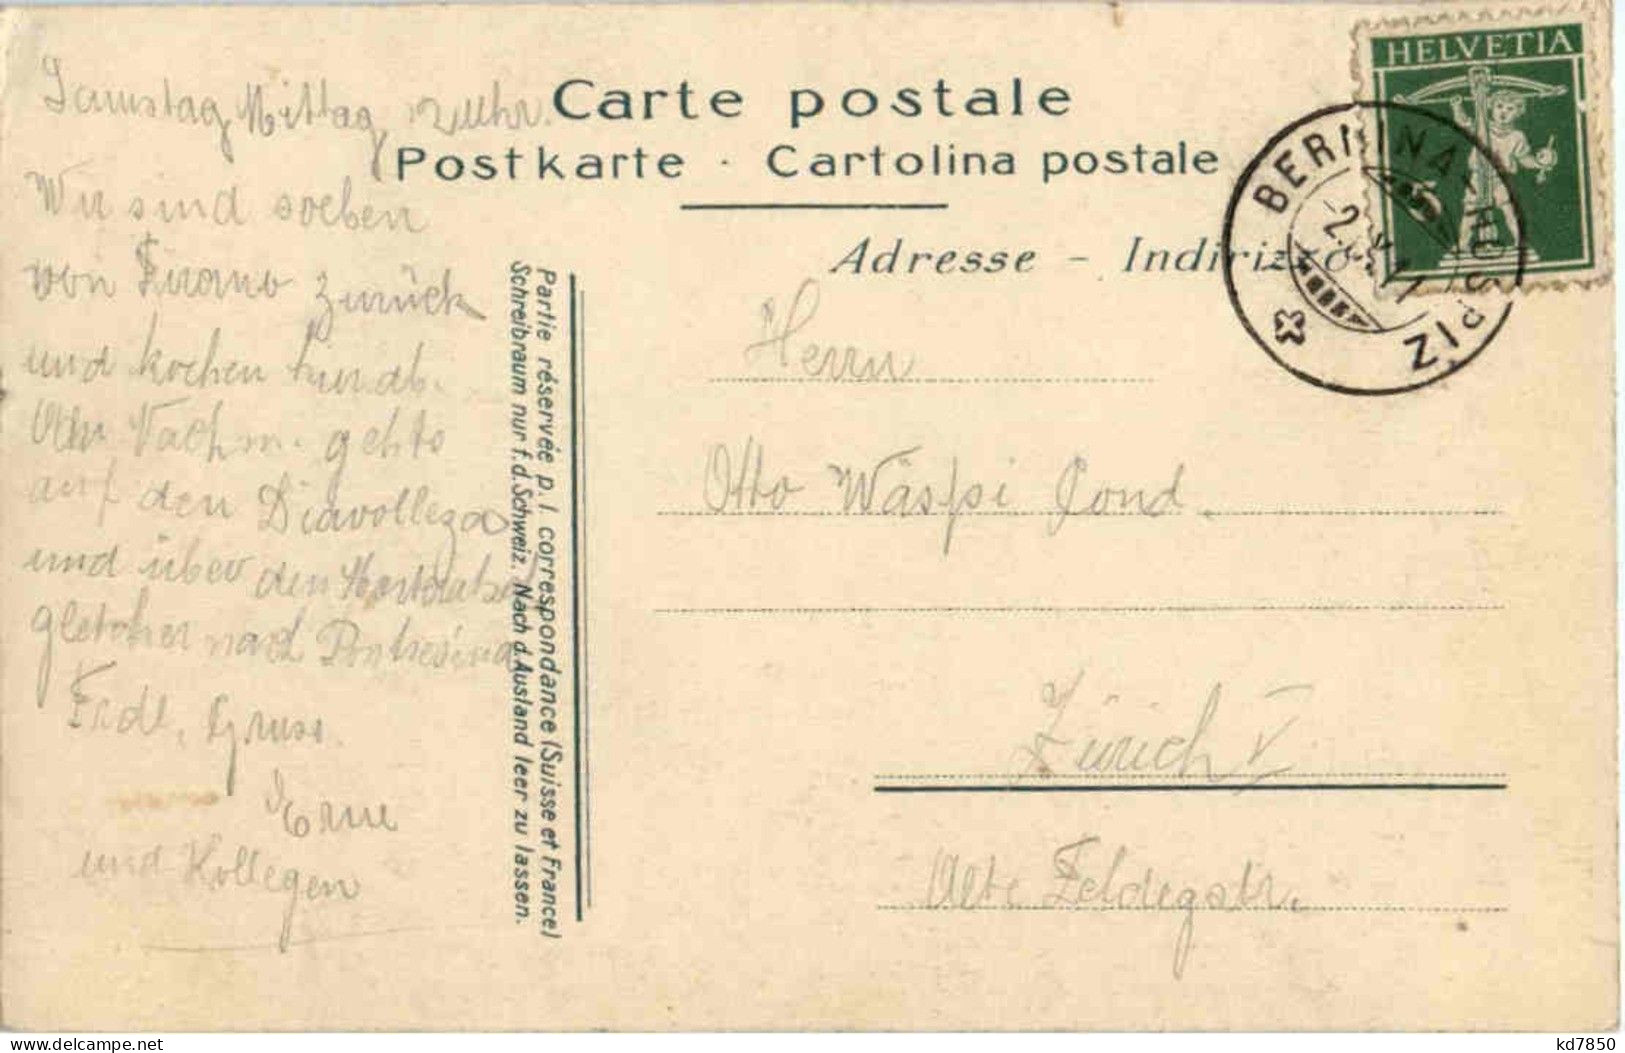 Carte postale
Postkarte · Cartolina postale
Adresse - Indirizzo
HELVETIA
5
BERNINA-HOSPIZ
-2.
11
Samstag Mittag 12 Uhr.
Wir sind soeben
von Tirano zurück
und kochen hier ab.
Nachm. gehts
auf den Diavolleza
und über den Morteratsch
gletscher nach Pontresina
Frdl. Gruss.
und Kollegen
Partie réservée p. l correspondance (Suisse et France)
Schreibraum nur f. d. Schweiz. Nach d. Ausland leer zu lassen.
Herrn
Otto Wäspi Cond.
Zürich V.
Alte Feldegstr.
kd7850